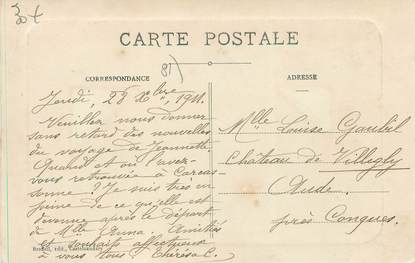 30 +
CARTE POSTALE
81)
CORRESPONDANCE
ADRESSE
Jeudi, 28 Xbre, 1911.
Veuillez nous donner
sans retard des nouvelles
du voyage de Jeannette
Quand et où l'avez-
vous retrouvée à Carcas-
sonne? Je suis très en
peine de ce qu'elle est
devenue après le départ
de Mlle Anna. Amitiés
et souhaits affectueux
à vous tous. Thérèse C.
Mlle Louise Gaubil
Château de Villegly
Aude.
près Conques.
édit., Castelnaudary